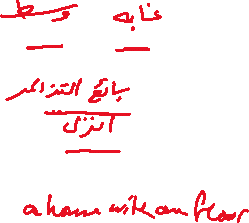 غابه وسط
بائع التذاكر
انزل
a home with an floor